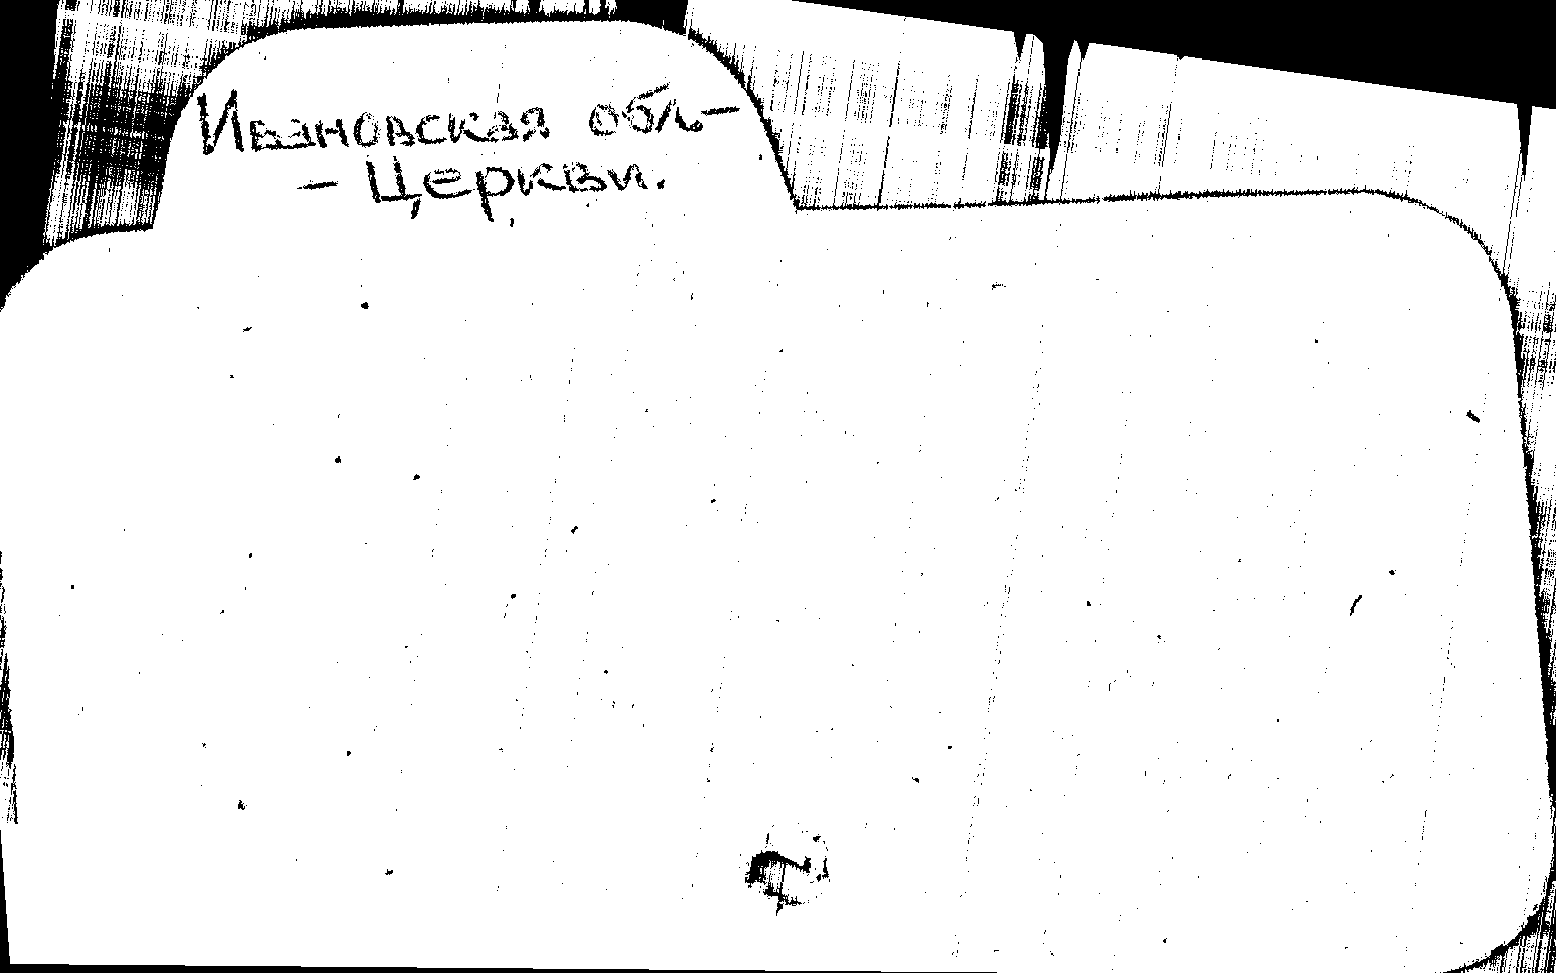 Ивановская обл. –
– Церкви.